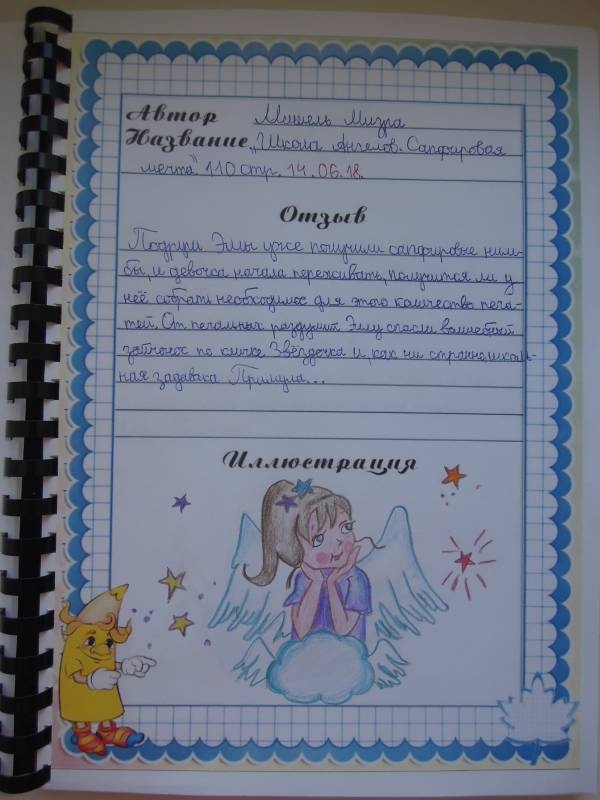 Автор Мишель Мизра
Название „Школа Ангелов. Сапфировая
мечта" 110 стр. 14.06.18.
Отзыв
Подруги Эллы уже получили сапфировые ним-
бы, и девочка начала переживать, получится ли у
неё собрать необходимое для этого количество печа-
тей. От печальных раздумий Эллу спасли волшебный
зайчонок по кличке Звёздочка и, как ни странно, школь-
ная задавака Примула...
Иллюстрация